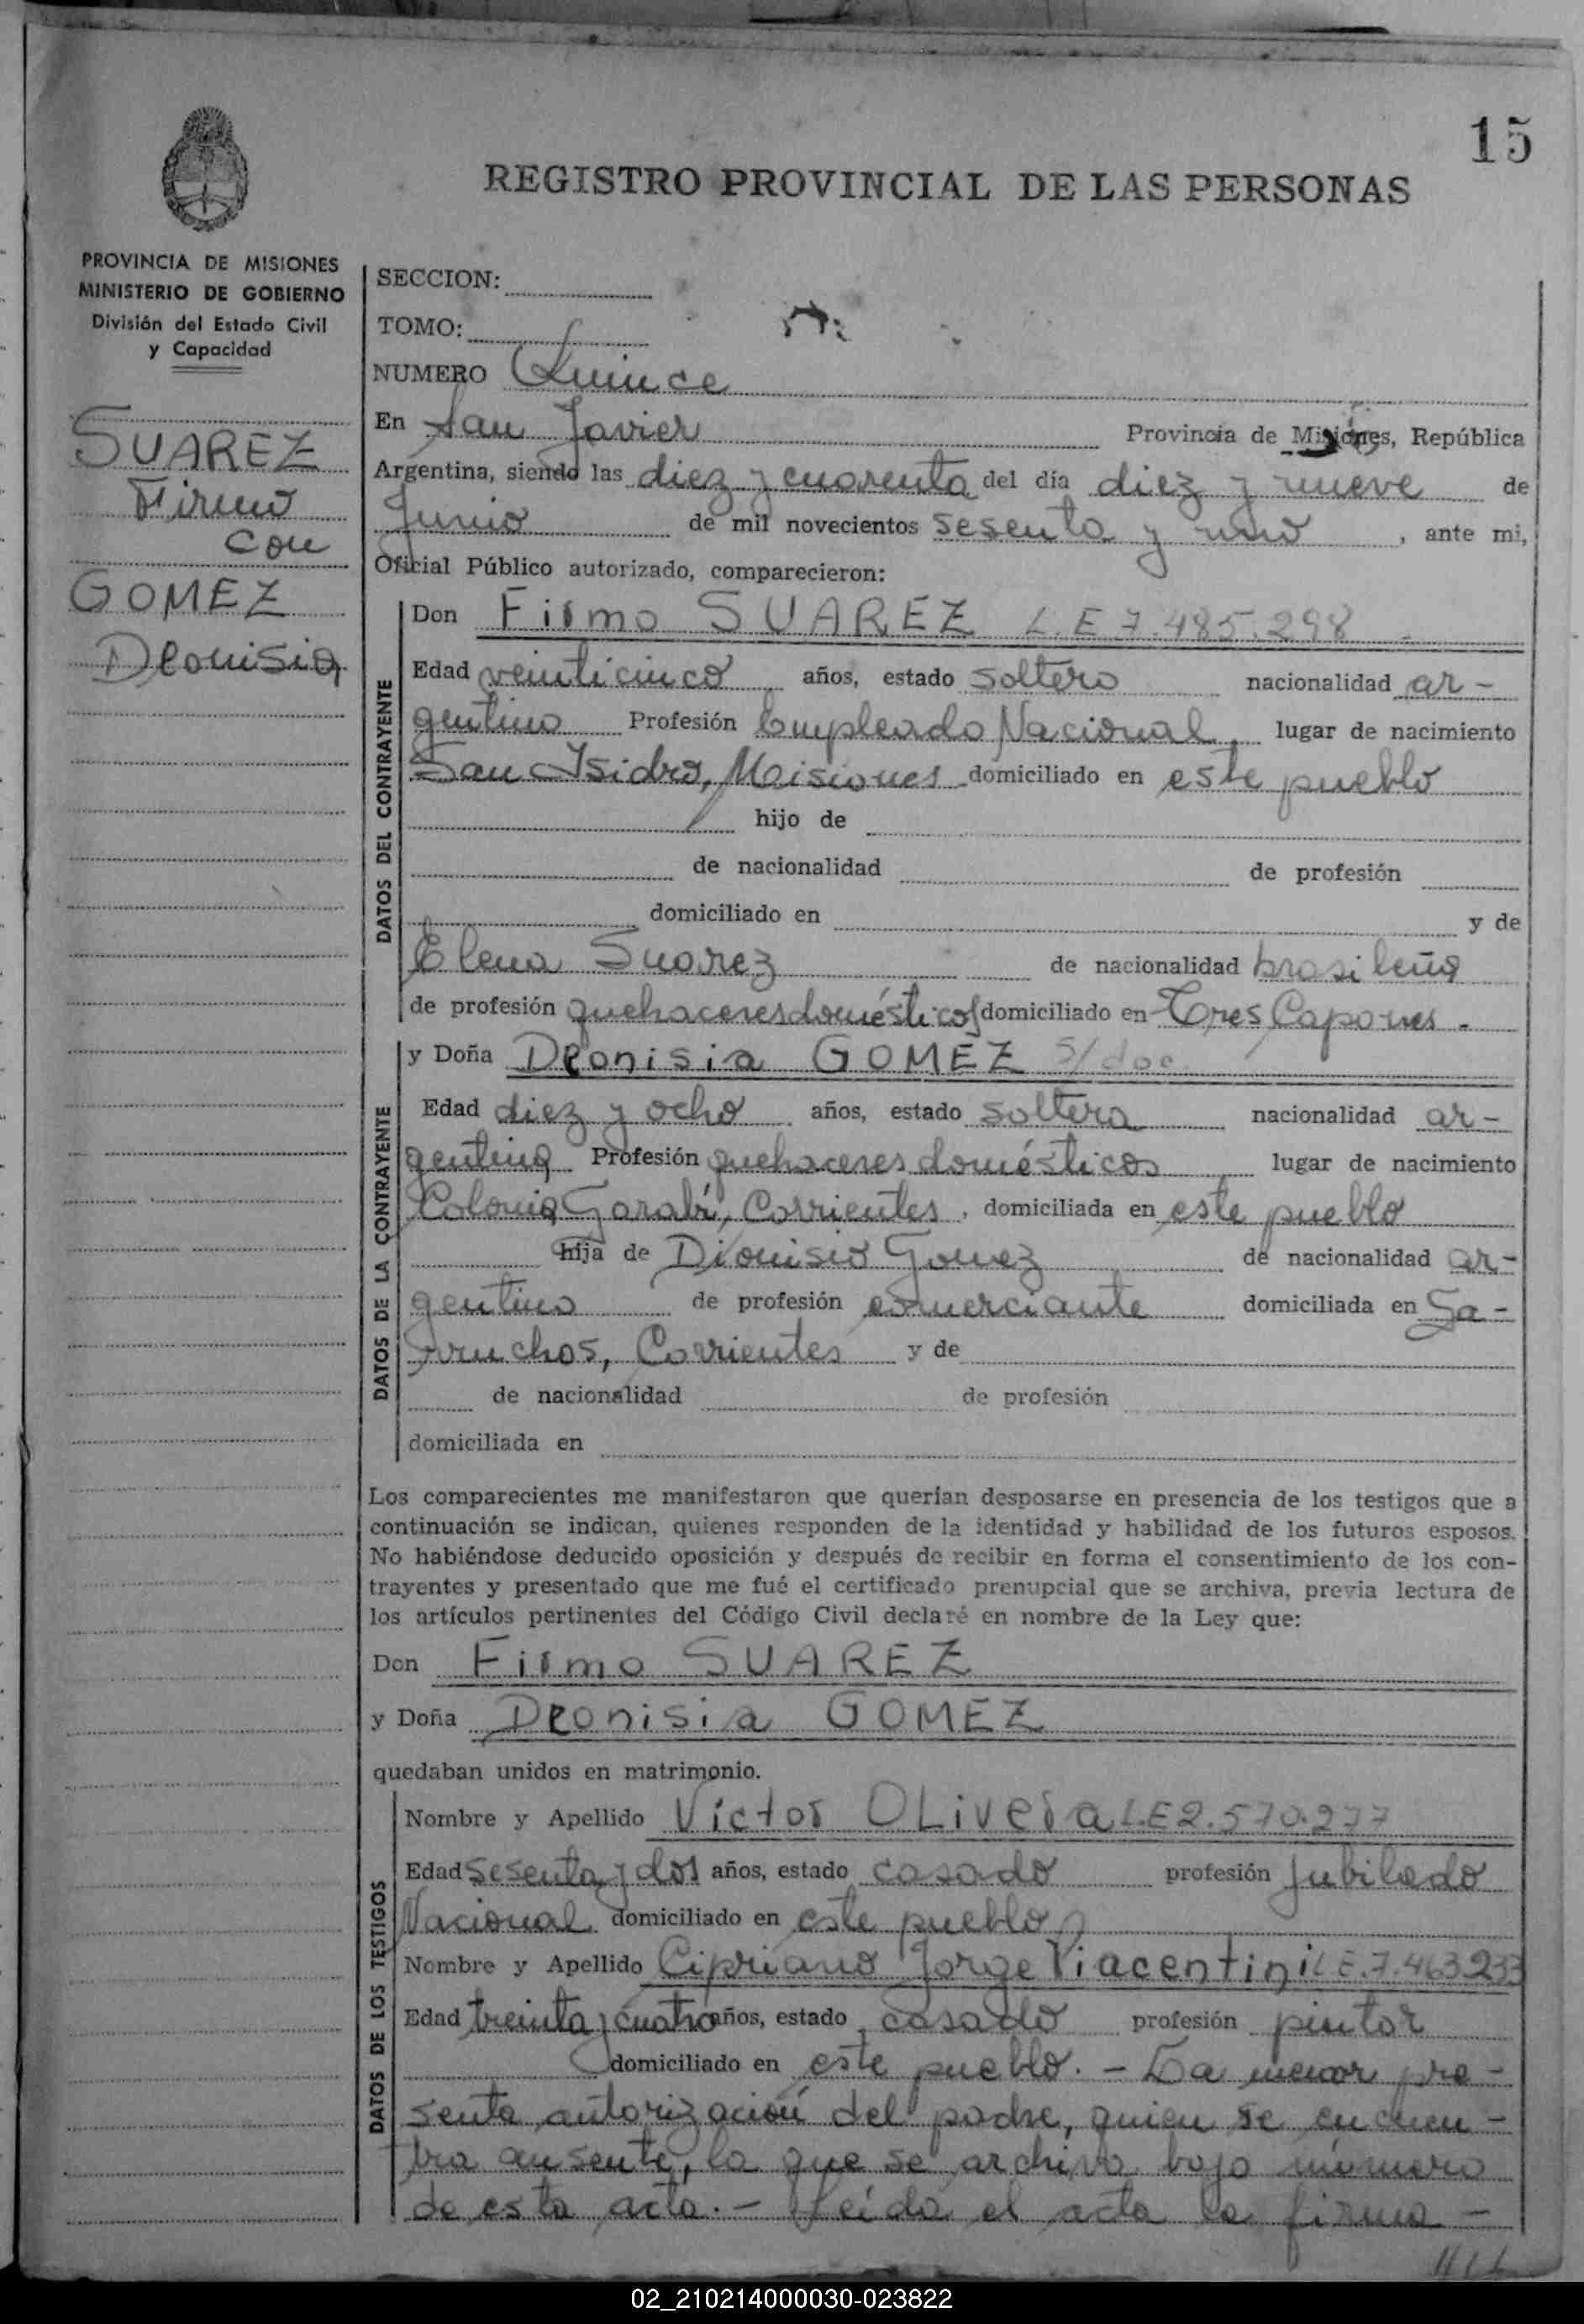 15
REGISTRO PROVINCIAL DE LAS PERSONAS
PROVINCIA DE MISIONES
MINISTERIO DE GOBIERNO
División del Estado Civil
y Capacidad
SUAREZ
Firmo
con
GOMEZ
Deonisia
SECCION:
TOMO:
NUMERO Quince
En San Javier Provincia de Misiones, República
Argentina, siendo las diez y cuarenta del día diez y nueve de
Junio de mil novecientos sesenta y uno, ante mi,
Oficial Público autorizado, comparecieron:
DATOS DEL CONTRAYENTE
Don Firmo SUAREZ L.E 7.485.298
Edad veinticinco años, estado soltero nacionalidad ar-
gentino Profesión Empleado Nacional, lugar de nacimiento
San Isidro, Misiones domiciliado en este pueblo
hijo de
de nacionalidad de profesión
domiciliado en y de
Elena Suarez de nacionalidad brasileña
de profesión quehaceres domésticos domiciliado en Tres Capones.
DATOS DE LA CONTRAYENTE
y Doña Deonisia GOMEZ S/doc
Edad diez y ocho años, estado soltera nacionalidad ar-
gentina Profesión quehaceres domésticos lugar de nacimiento
Colonia Garabí, Corrientes, domiciliada en este pueblo
hija de Dionisio Gomez de nacionalidad ar-
gentino de profesión comerciante domiciliada en Ga-
rruchos, Corrientes y de
de nacionalidad de profesión
domiciliada en
Los comparecientes me manifestaron que querían desposarse en presencia de los testigos que a
continuación se indican, quienes responden de la identidad y habilidad de los futuros esposos.
No habiéndose deducido oposición y después de recibir en forma el consentimiento de los con-
trayentes y presentado que me fué el certificado prenupcial que se archiva, previa lectura de
los artículos pertinentes del Código Civil declaré en nombre de la Ley que:
Don Firmo SUAREZ
y Doña Deonisia GOMEZ
quedaban unidos en matrimonio.
DATOS DE LOS TESTIGOS
Nombre y Apellido Víctor OLivera L.E 2.570.277
Edad sesenta y dos años, estado casado profesión Jubilado
Nacional domiciliado en este pueblo
Nombre y Apellido Cipriano Jorge Piacentini L.E.7.463.233
Edad treinta y cuatro años, estado casado profesión pintor
domiciliado en este pueblo.- La menor pre-
senta autorización del padre, quien se encuen-
tra ausente, la que se archiva bajo número
de esta acta.- Leída el acta la firma-
02_210214000030-023822